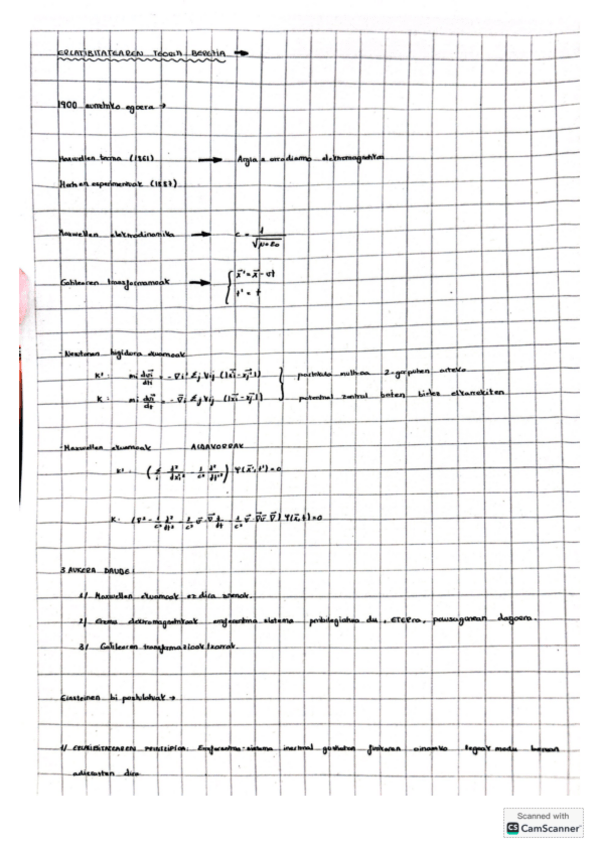 ERLATIBITATEAREN TEORIA BEREZIA →
1900 urteko egoera →
Maxwellen teoria (1861) → Argia = erradiazio elektromagnetikoa
Hertzen esperimentuak (1887)
Maxwellen elektrodinamika → c = 1/√μ₀ε₀
Galilearen transformazioak → { x⃗' = x⃗ - vt
t' = t
- Newtonen higidura ekuazioak
K': mi = - ∇i' Σj Vij (|xi' - xj'|) } partikula multzoa 2-gorputzen arteko
K: mi = - ∇i Σj Vij (|xi - xj|) potentzial zentral baten bidez elkarrekiten
- Maxwellen ekuazioak ALDAKORRAK
K': Ψ(x⃗', t') = 0
K: Ψ(x⃗, t) = 0
3 AUKERA DAUDE:
1/ Maxwellen ekuazioak ez dira zuzenak.
2/ Eremu elektromagnetikoak erreferentzia sistema pribilegiatua du, ETERra, pausagunean dagoena.
3/ Galilearen transformazioak okerrak.
Einsteinen bi postulatuak →
1/ ERLATIBITATEAREN PRINTZIPIOA: Erreferentzia-sistema inertzial guztietan fisikaren oinarrizko legeak modu berean
adierazten dira
Scanned with
CS CamScanner